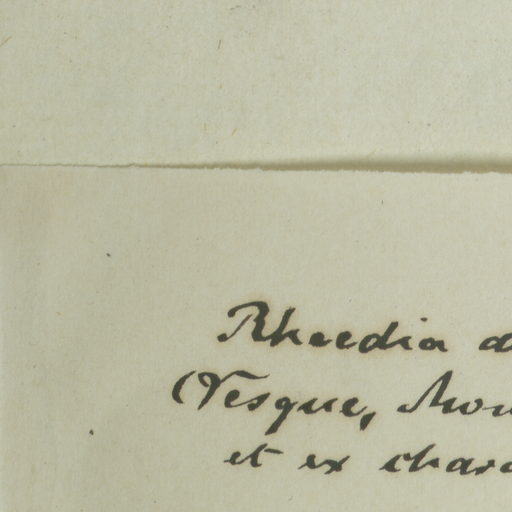 Rheedia a
(Vesque, Mon
et ex chara